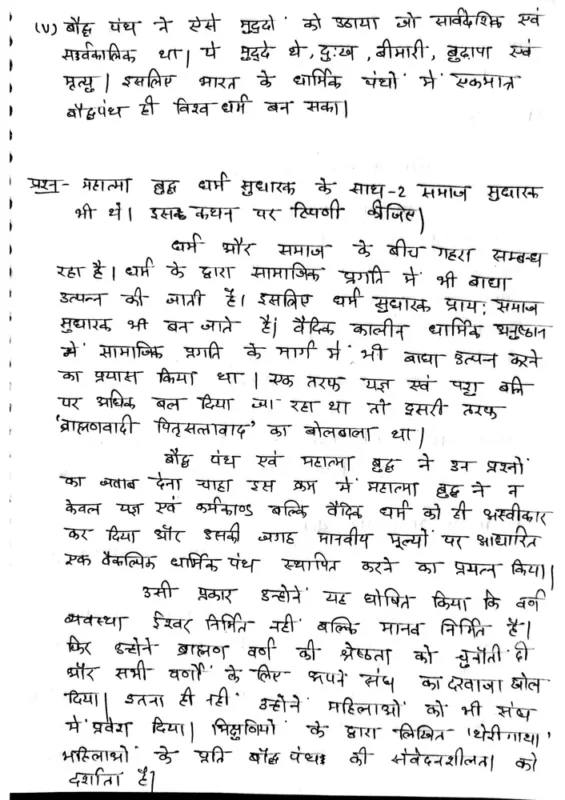 (v) बौद्ध पंथ ने ऐसे मुद्दों को उठाया जो सार्वदेशिक एवं
सार्वकालिक था। ये मुद्दे थे, दुःख, बीमारी, बुढ़ापा एवं
मृत्यु। इसलिए भारत के धार्मिक पंथों में एकमात्र
बौद्धपंथ ही विश्व धर्म बन सका।
प्रश्न- महात्मा बुद्ध धर्म सुधारक के साथ-2 समाज सुधारक
भी थे। इसके कथन पर टिपणी कीजिए।
धर्म और समाज के बीच गहरा सम्बन्ध
रहा है। धर्म के द्वारा सामाजिक प्रगति में भी बाधा
उत्पन्न की जाती है। इसलिए धर्म सुधारक प्रायः समाज
सुधारक भी बन जाते हैं। वैदिक कालीन धार्मिक अनुष्ठान
ने सामाजिक प्रगति के मार्ग में भी बाधा उत्पन्न करने
का प्रयास किया था। एक तरफ यज्ञ एवं पशु बलि
पर अधिक बल दिया जा रहा था तो दुसरी तरफ
'ब्राह्मणवादी पितृसत्तावाद' का बोलबाला था।
बौद्ध पंथ एवं महात्मा बुद्ध ने उन प्रश्नों
का जवाब देना चाहा इस क्रम में महात्मा बुद्ध ने न
केवल यज्ञ एवं कर्मकाण्ड बल्कि वैदिक धर्म को ही अस्वीकार
कर दिया और उसकी जगह मानवीय मूल्यों पर आधारित
एक वैकल्पिक धार्मिक पंथ स्थापित करने का प्रयत्न किया।
उसी प्रकार उन्होंने यह घोषित किया कि वर्ण
व्यवस्था ईश्वर निर्मित नहीं बल्कि मानव निर्मित है।
फिर उन्होंने ब्राह्मण वर्ण की श्रेष्ठता को चुनौती दी
और सभी वर्णों के लिए अपने संघ का दरवाजा खोल
दिया। इतना ही नहीं उन्होंने महिलाओं को भी संघ
में प्रवेश दिया। भिक्षुणियों के द्वारा लिखित 'थेरीगाथा'
महिलाओं के प्रति बौद्ध पंथ की संवेदनशीलता को
दर्शाता है।